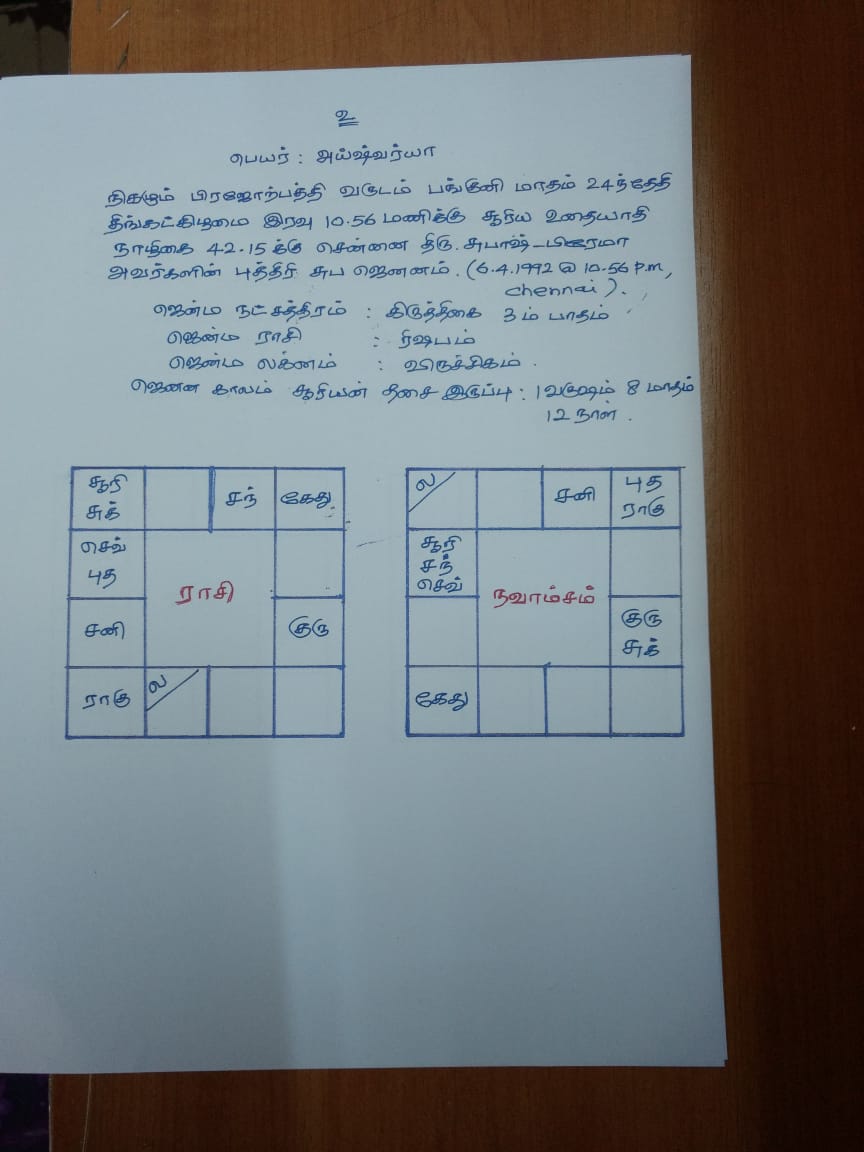 உ
பெயர் : அய்ஷ்வர்யா
நிகழும் பிரஜோற்பத்தி வருடம் பங்குனி மாதம் 24ந்தேதி
திங்கட்கிழமை இரவு 10.56 மணிக்கு சூரிய உதையாதி
நாழிகை 42.15 க்கு சென்னை திரு. சுபாஷ் - பிரேமா
அவர்களின் புத்திரி சுப ஜெனனம். (6.4.1992 @ 10.56 p.m,
chennai).
ஜென்ம நட்சத்திரம் : கிருத்திகை 3 ம் பாதம்
ஜென்ம ராசி : ரிஷபம்
ஜென்ம லக்னம் : விருச்சிகம் .
ஜெனன காலம் சூரியன் தீசை இருப்பு : 1 வருஷம் 8 மாதம்
12 நாள் .
சூரி சந் கேது
சுக்
செவ்
புத
ராசி
சனி குரு
ராகு ல
ல சனி புத
ராகு
சூரி
சந்
செவ்
நவாம்சம்
குரு
சுக்
கேது